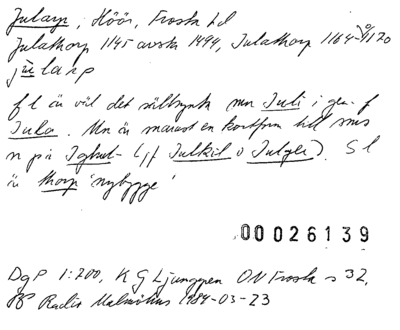 Jularp, Höör, Frosta hd
Julathorp 1145 avskr 1494, Julathorp 1164-ca 1170
jùlarp
f l är väl det sällsynta mn Juli i gen. f
Jula. Mn är närmast en kortform till mns
n på Jghul- (jf Julkil o Julger). S l
är thorp 'nybygge'
00026139
DgP 1:200, K G Ljunggren ON Frosta s 32,
Radio Malmöhus 1984-03-23